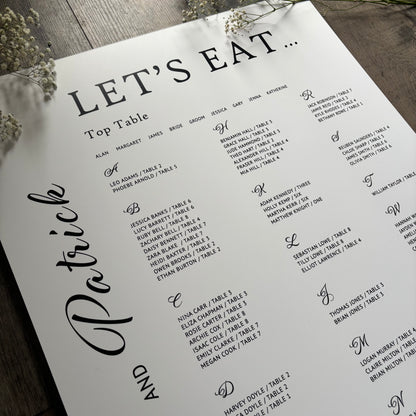 LET'S EAT ...
Top Table
ALAN MARGARET JAMES BRIDE GROOM JESSICA GARY JENNA KATHERINE
A
LEO ADAMS / TABLE 2
PHOEBE ARNOLD / TABLE 5
B
JESSICA BANKS / TABLE 6
LUCY BARRETT / TABLE 6
RUBY BELL / TABLE 4
ZACHARY BELL / TABLE 4
DAISY BENNETT / TABLE 7
ZARA BLAKE / TABLE 7
HEIDI BAXTER / TABLE 3
OWEN BROOKS / TABLE 2
ETHAN BURTON / TABLE 2
C
NINA CARR / TABLE 3
ELIZA CHAPMAN / TABLE 3
ROSIE CARTER / TABLE 5
ARCHIE COX / TABLE 4
ISAAC COLE / TABLE 4
EMILY CLARKE / TABLE 7
MEGAN COOK / TABLE 7
D
HARVEY DOYLE / TABLE 2
DOYLE / TABLE 2
H
BENJAMIN HALL / TABLE 7
GRACE HALL / TABLE
JUDE HAMMOND / TABLE
THEO HART / TABLE
ALEXANDER
FRASER HILL / TABLE 4
MIA HILL / TABLE 4
K
ADAM KENNEDY / THREE
HOLLY KEMP / SIX
MARTHA KERR / SIX
MATTHEW KNIGHT / ONE
L
SEBASTIAN LOWE / TABLE 8
TILLY LOWE / TABLE 8
ELLIOT LAWRENCE / TABLE 4
J
THOMAS JONES / TABLE 3
BRIAN JONES / TABLE 1
M
LOGAN MURRAY /
CLAIRE MILLER /
EMILY MILLER /
BRIAN MILTON /
R
JACK ROBINSON / TABLE 7
JAMIE REID / TABLE 2
KYLE RHODES / TABLE
BETHANY ROWE / TABLE
S
REUBEN SAUNDERS / TABLE
CHLOE SHARP / TABLE
JAMES SMITH / TABLE
OLIVIA SMITH / TABLE
T
WILLIAM TAYLOR /
W
Patrick
AND